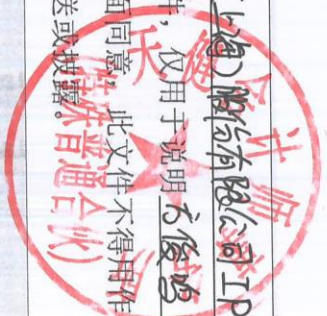 上海)股份有限公司IP
件，仅用于说明方俊鸣
面同意，此文件不得用作
送或披露。
会计师
特殊普通合伙)